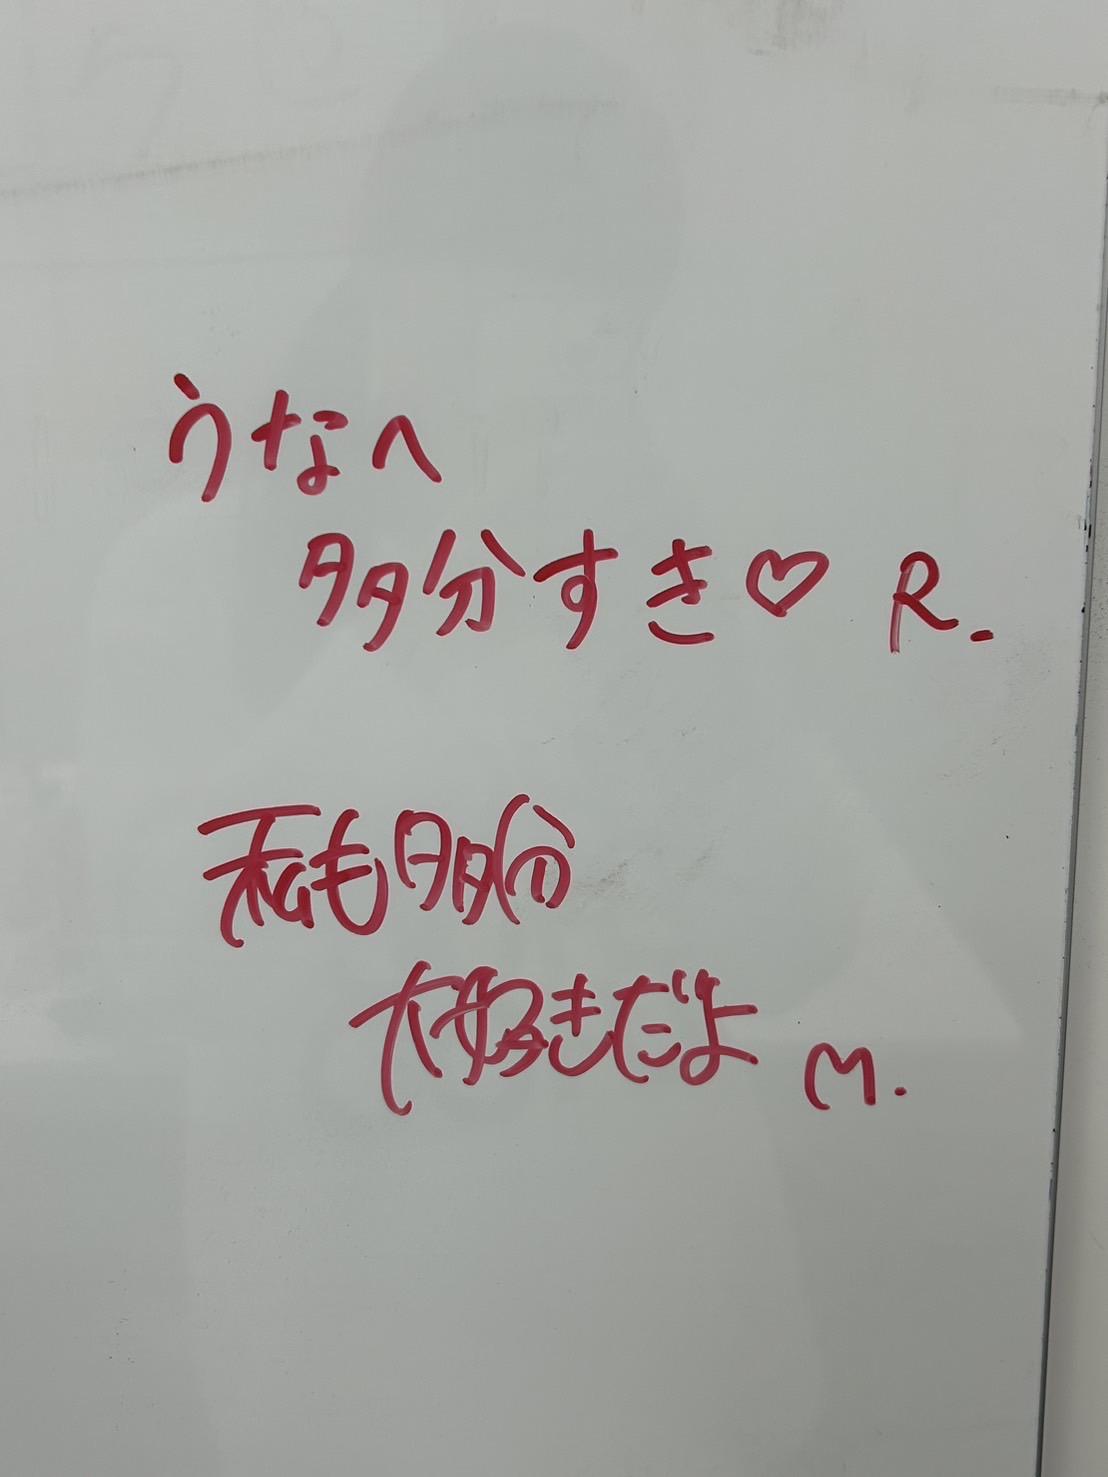 うなへ
多分すき♡ R.
私も多分
大好きだよ M.